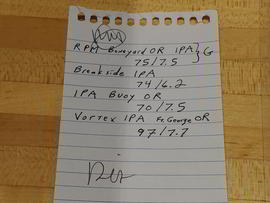 RPM Boneyard OR IPA } G
75/7.5
Breakside IPA
74/6.2
IPA Buoy OR
70/7.5
Vortex IPA Ft. George OR
97/7.7